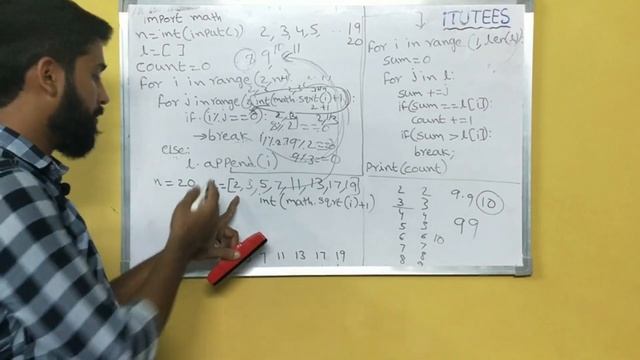 import math
n=int(input()) 2, 3, 4, 5, .. 19
20
l=[ ]
count=0
for i in range(2,n+1
for j in range(2,int(math.sqrt(i)+1):
if (i%j==0):
8%2==0
→break
else:
9%3==0
l.append(i)
n=20 =[2,3,5,7,11,13,17,19]
int(math.sqrt(i)+1)
7 11 13 17 19
iTUTEES
for i in range(1,len(l)):
sum=0
for j in l:
sum+=j
if(sum==l[i]):
count+=1
if(sum>l[i]):
break;
Print(count)
2 2 9.9 10
3 3
4 4 99
5 3
6 6 10
7 7
8 8
9